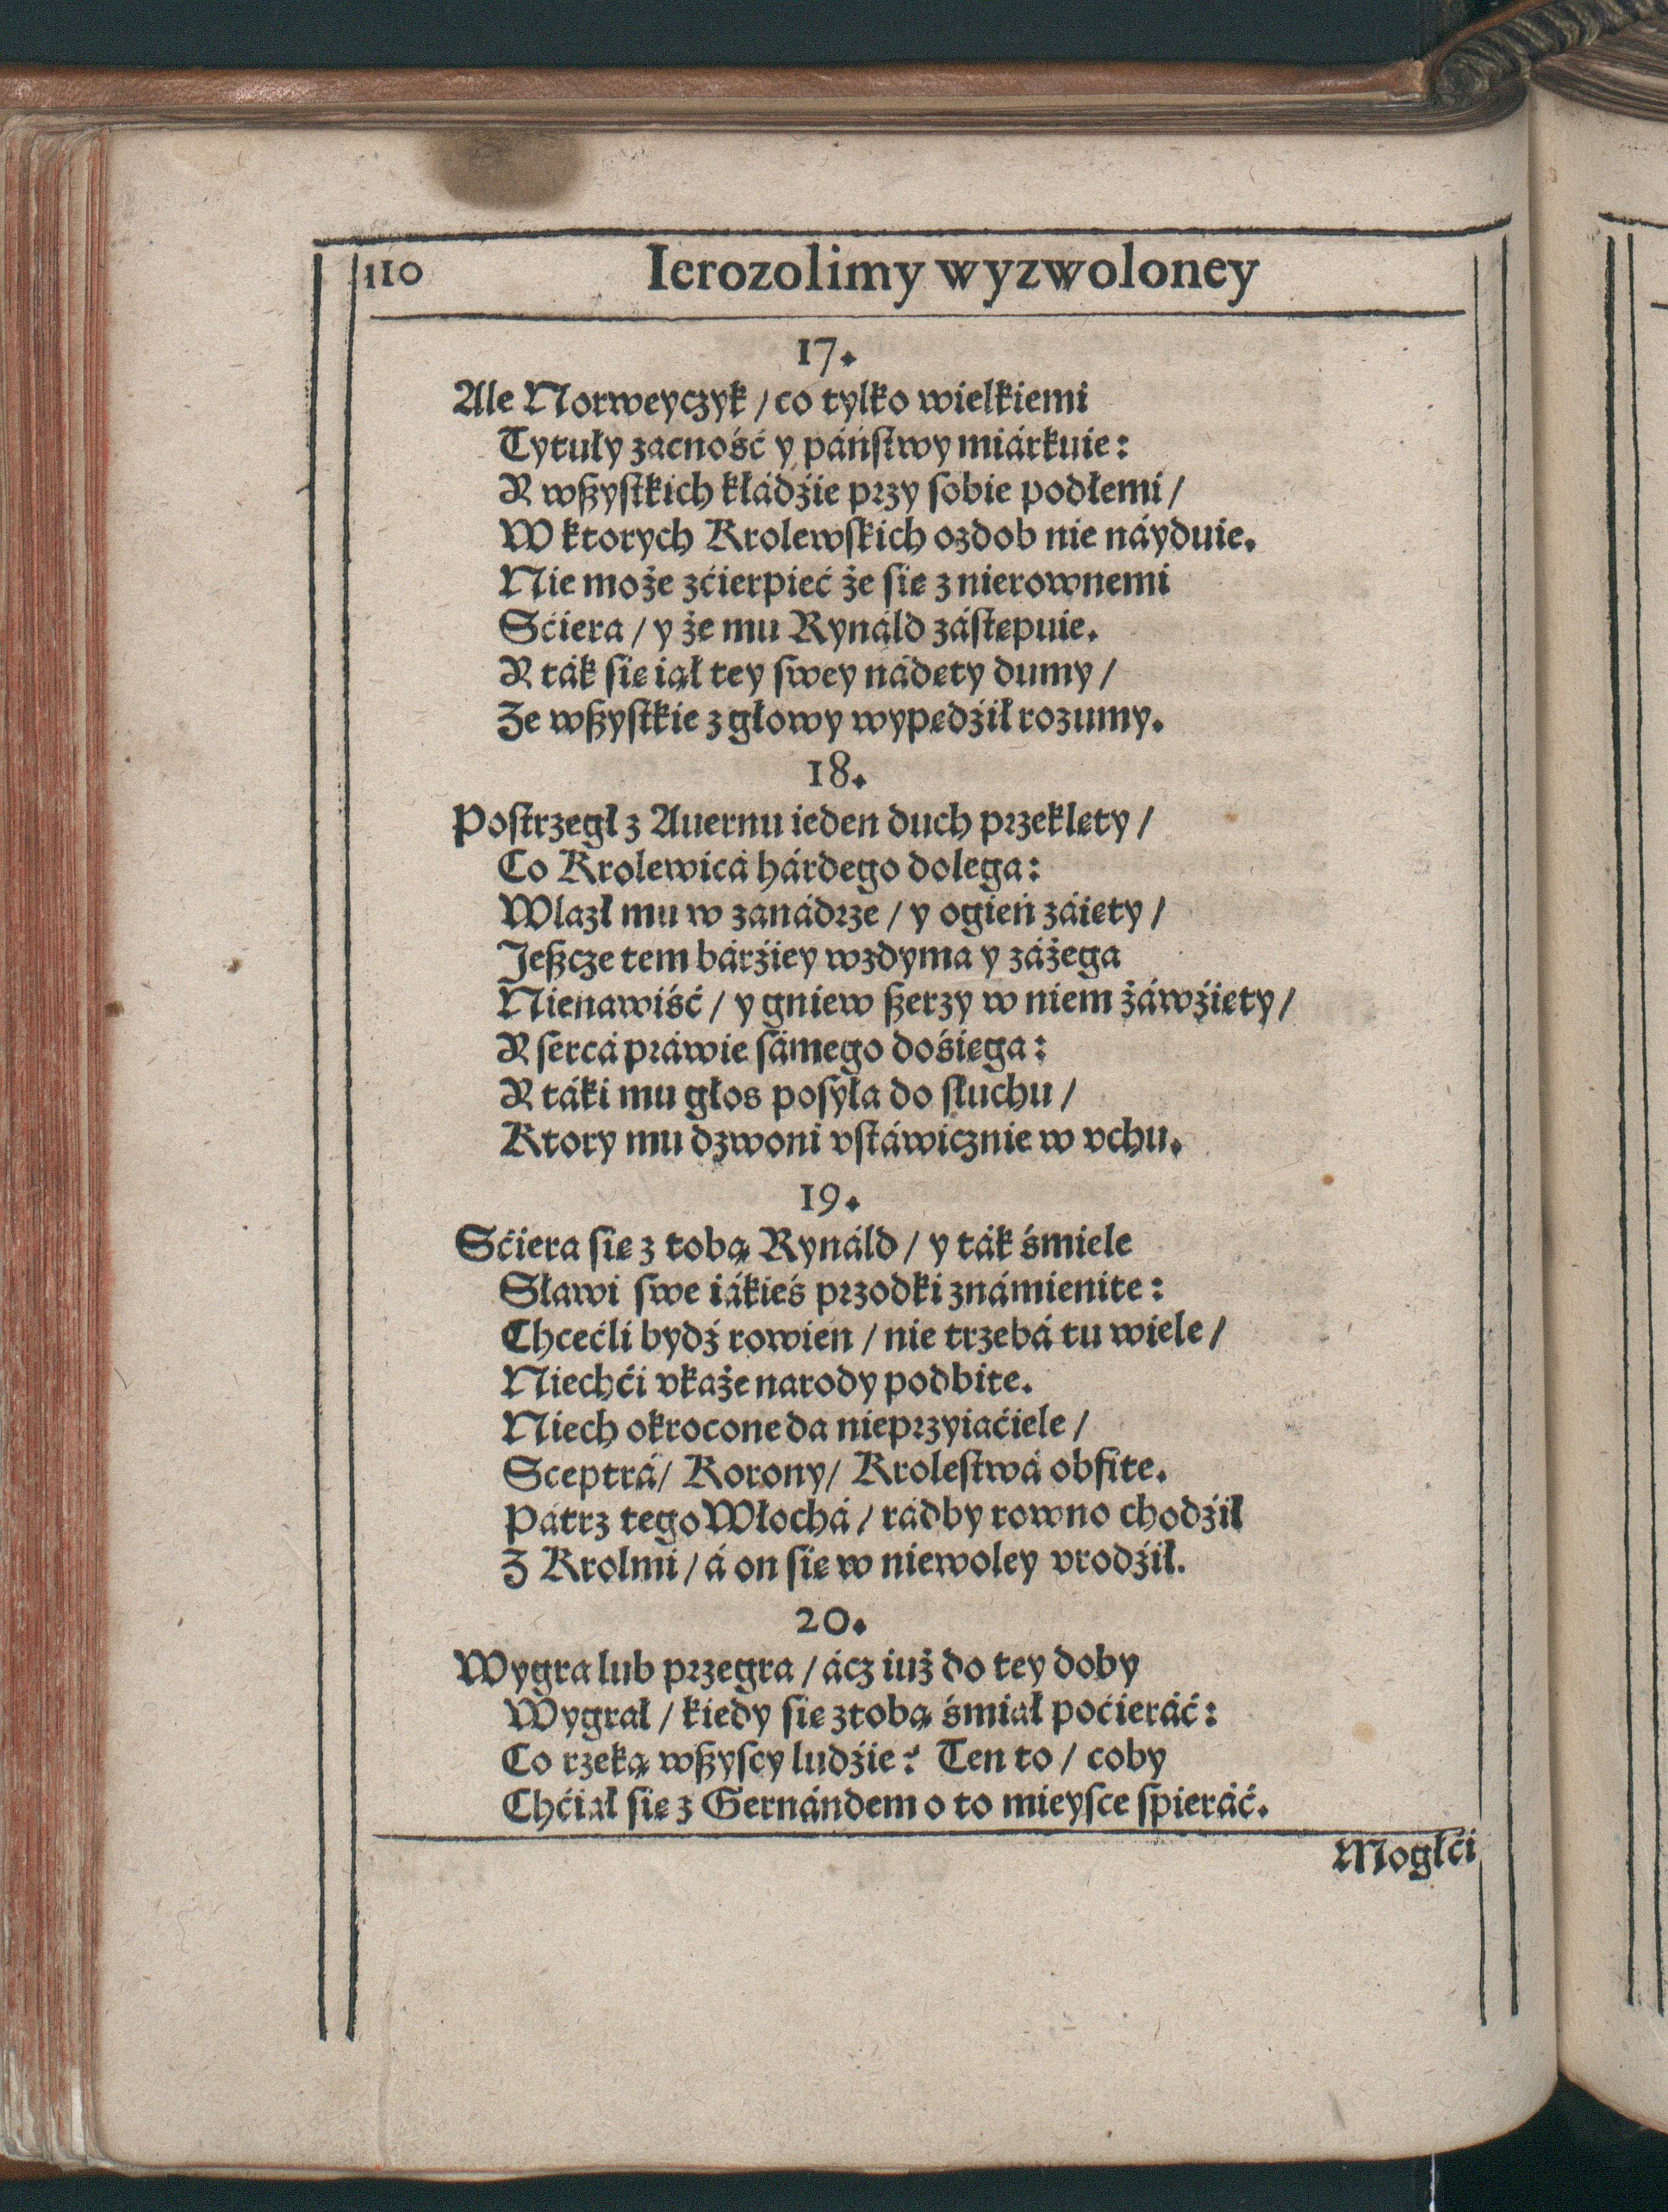 110 Ierozolimy wyzwoloney
17.
Ale Norweyczyk / co tylko wielkiemi
Tytuły zacność y páńſtwy miárkuie:
R wßyſtkich kłádźie przy ſobie podłemi /
W ktorych Krolewſkich ozdob nie náyduie.
Nie może zćierpieć że ſię z nierownemi
Sćiera / y że mu Rynáld záſtępuie.
R ták ſię iął tey ſwey nádęty dumy /
Ze wßyſtkie z głowy wypędźił rozumy.
18.
Poſtrzegł z Auernu ieden duch przeklęty /
Co Krolewicá hárdego dolega:
Wlazł mu w zanádrze / y ogień záięty /
Jeßcze tem bárźiey wzdyma y záżega
Nienawiść / y gniew ßerzy w niem żáwźięty /
R ſercá práwie ſámego dośięga:
R táki mu głos poſyła do ſłuchu /
Ktory mu dzwoni vſtáwicznie w vchu.
19.
Sćiera ſię z tobą Rynáld / y ták śmiele
Sławi ſwe iákieś przodki známienite:
Chcećli bydź rowien / nie trzebá tu wiele /
Niechći vkaże narody podbite.
Niech okrocone da nieprzyiaćiele /
Sceptrá/ Korony/ Kroleſtwá obfite.
Pátrz tego Włochá / rádby rowno chodźił
Z Krolmi / á on ſię w niewoley vrodźił.
20.
Wygra lub przegra / ácz iuż do tey doby
Wygrał / kiedy ſię ztobą śmiał poćieráć:
Co rzeką wßyſcy ludźie? Ten to / coby
Chćiał ſię z Gernándem o to mieyſce ſpieráć.
Mogłći